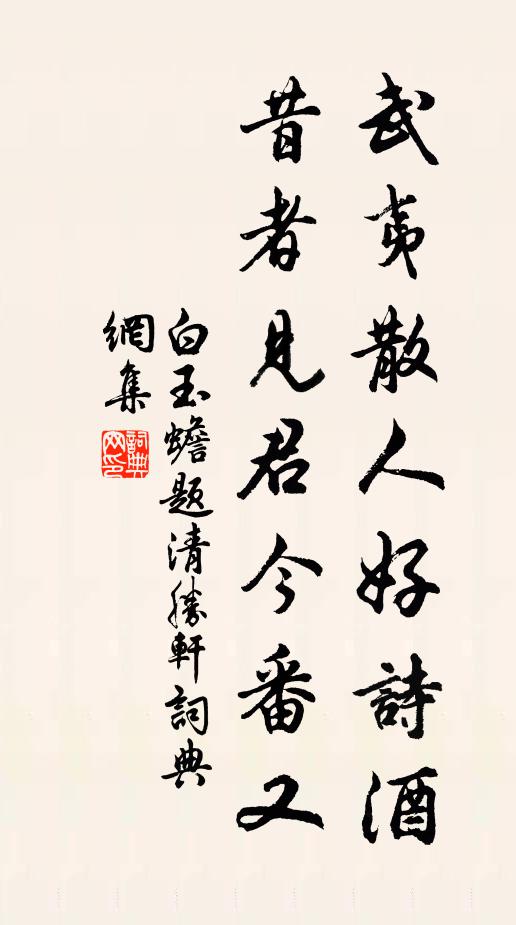 武夷散人好詩酒
昔者見君今番又
白玉蟾題清勝軒詞典
網集
詞典網印